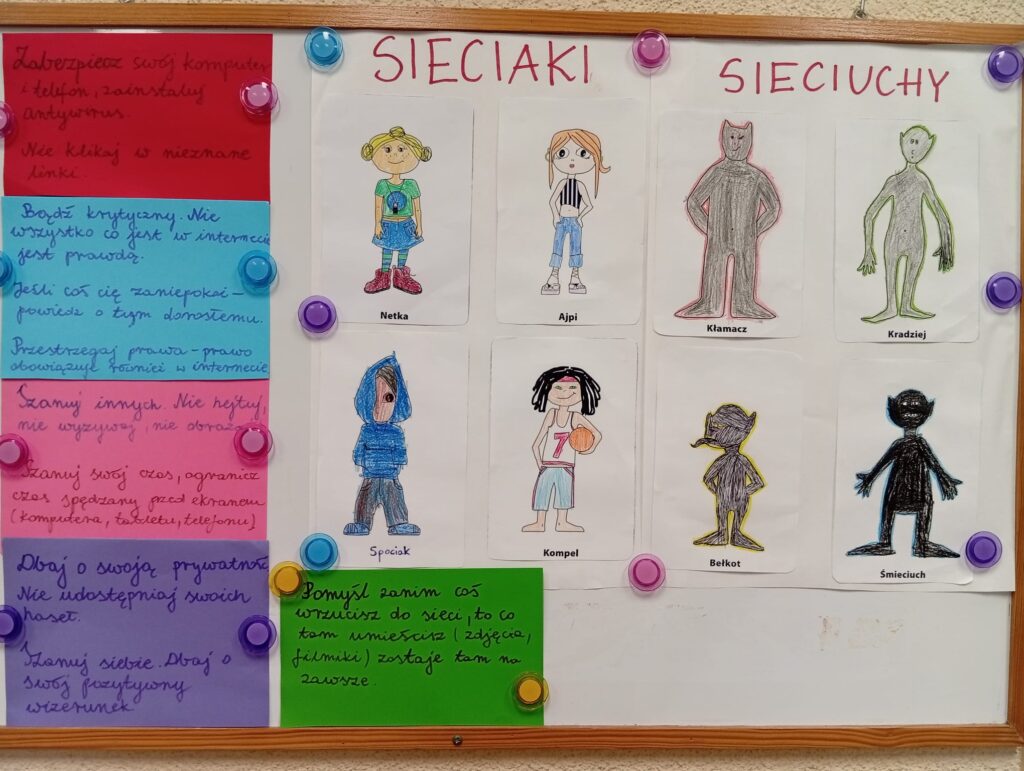 Zabezpiecz swój komputer
i telefon, zainstaluj
antywirus.
Nie klikaj w nieznane
linki.
Bądź krytyczny. Nie
wszystko co jest w internecie
jest prawdą.
Jeśli coś cię zaniepokoi -
powiedz o tym dorosłemu.
Przestrzegaj prawa - prawo
obowiązuje również w internecie
Szanuj innych. Nie hejtuj,
nie wyzywaj, nie obrażaj
Szanuj swój czas, ogranicz
czas spędzany przed ekranem
(komputera, tabletu, telefonu)
Dbaj o swoją prywatność
Nie udostępniaj swoich
haseł.
Szanuj siebie. Dbaj o
swój pozytywny
wizerunek
SIECIAKI
Netka
Ajpi
Spociak
Kompel
SIECIUCHY
Kłamacz
Kradziej
Bełkot
Śmieciuch
Pomyśl zanim coś
wrzucisz do sieci, to co
tam umieścisz (zdjęcia,
filmiki) zostaje tam na
zawsze.